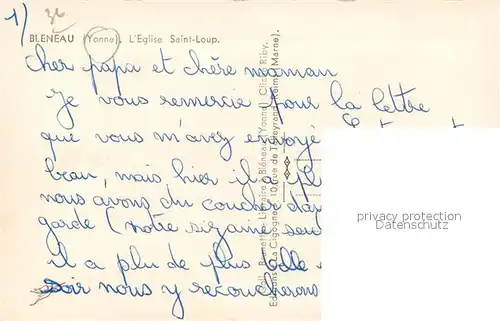 1) 32
BLENEAU (Yonne). L'Eglise Saint-Loup.
Cher papa et chère maman
Je vous remercie pour la lettre
que vous m'avez envoyé
beau, mais hier il a pl
nous avons du coucher da
garde (notre sizaine seu
il a plu de plus
soir nous y recoucherons
Librairie à Bléneau (Yonne). Cliché Riby.
Editions "La Cigogne", 10, rue de Talleyrand, Reims (Marne).
privacy protection
Datenschutz